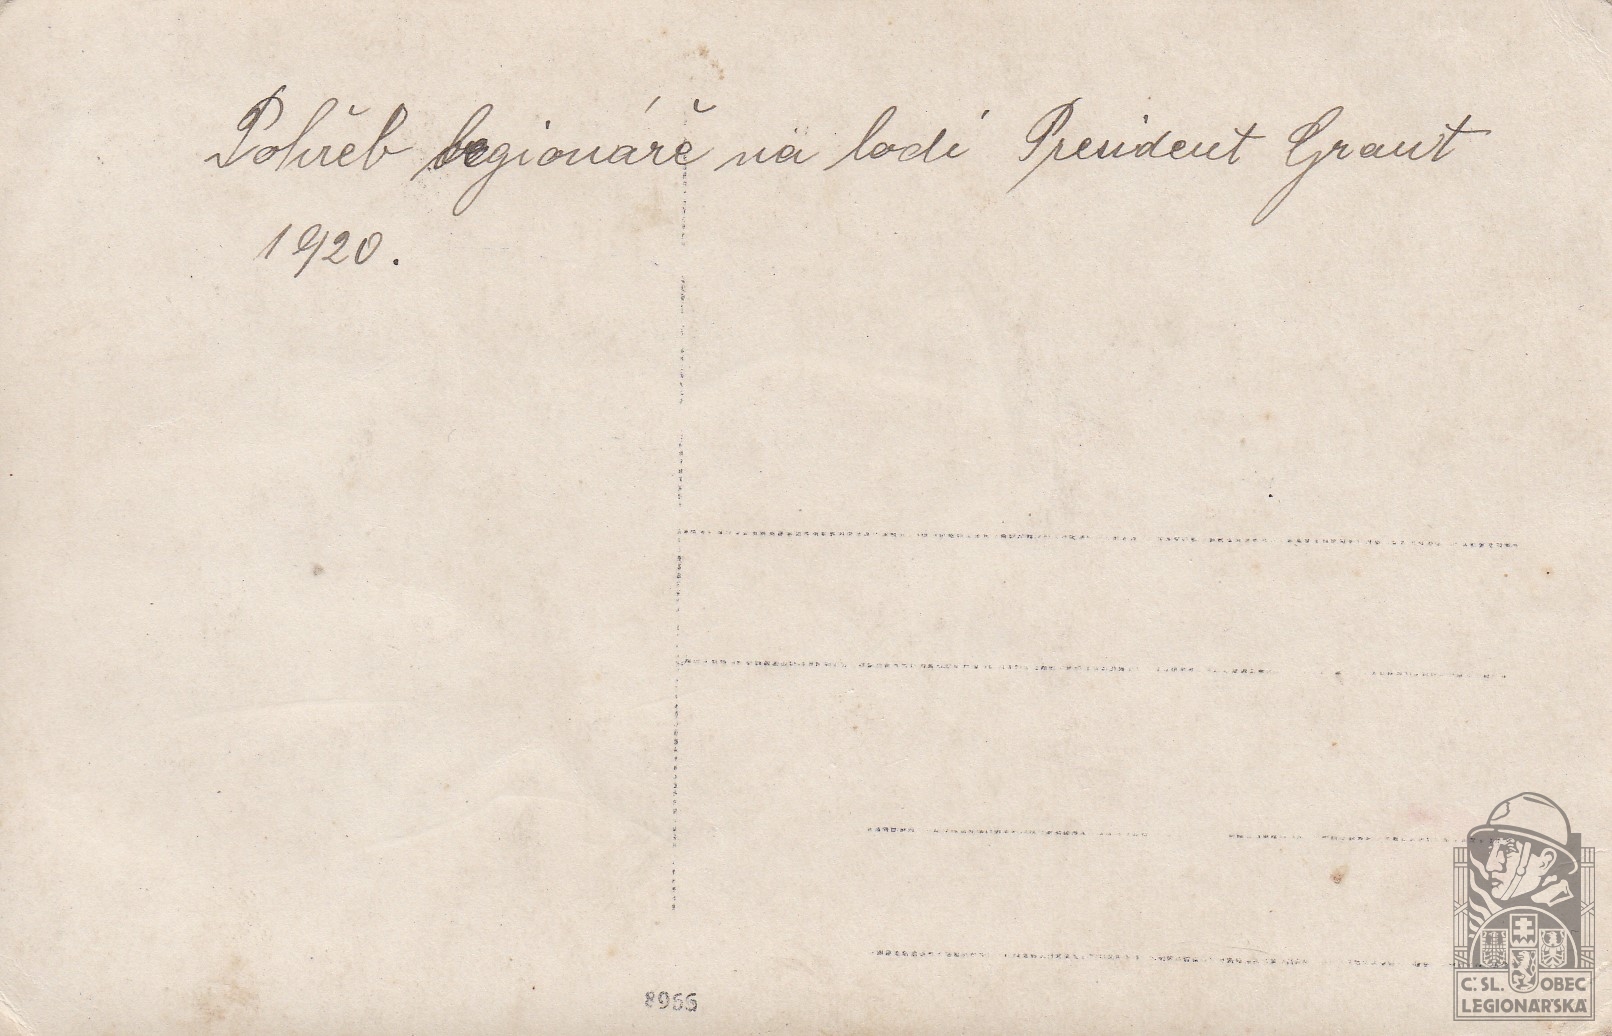 Pohřeb legionáře na lodi President Grant
1920.
8966
Č. SL. OBEC
LEGIONÁŘSKÁ